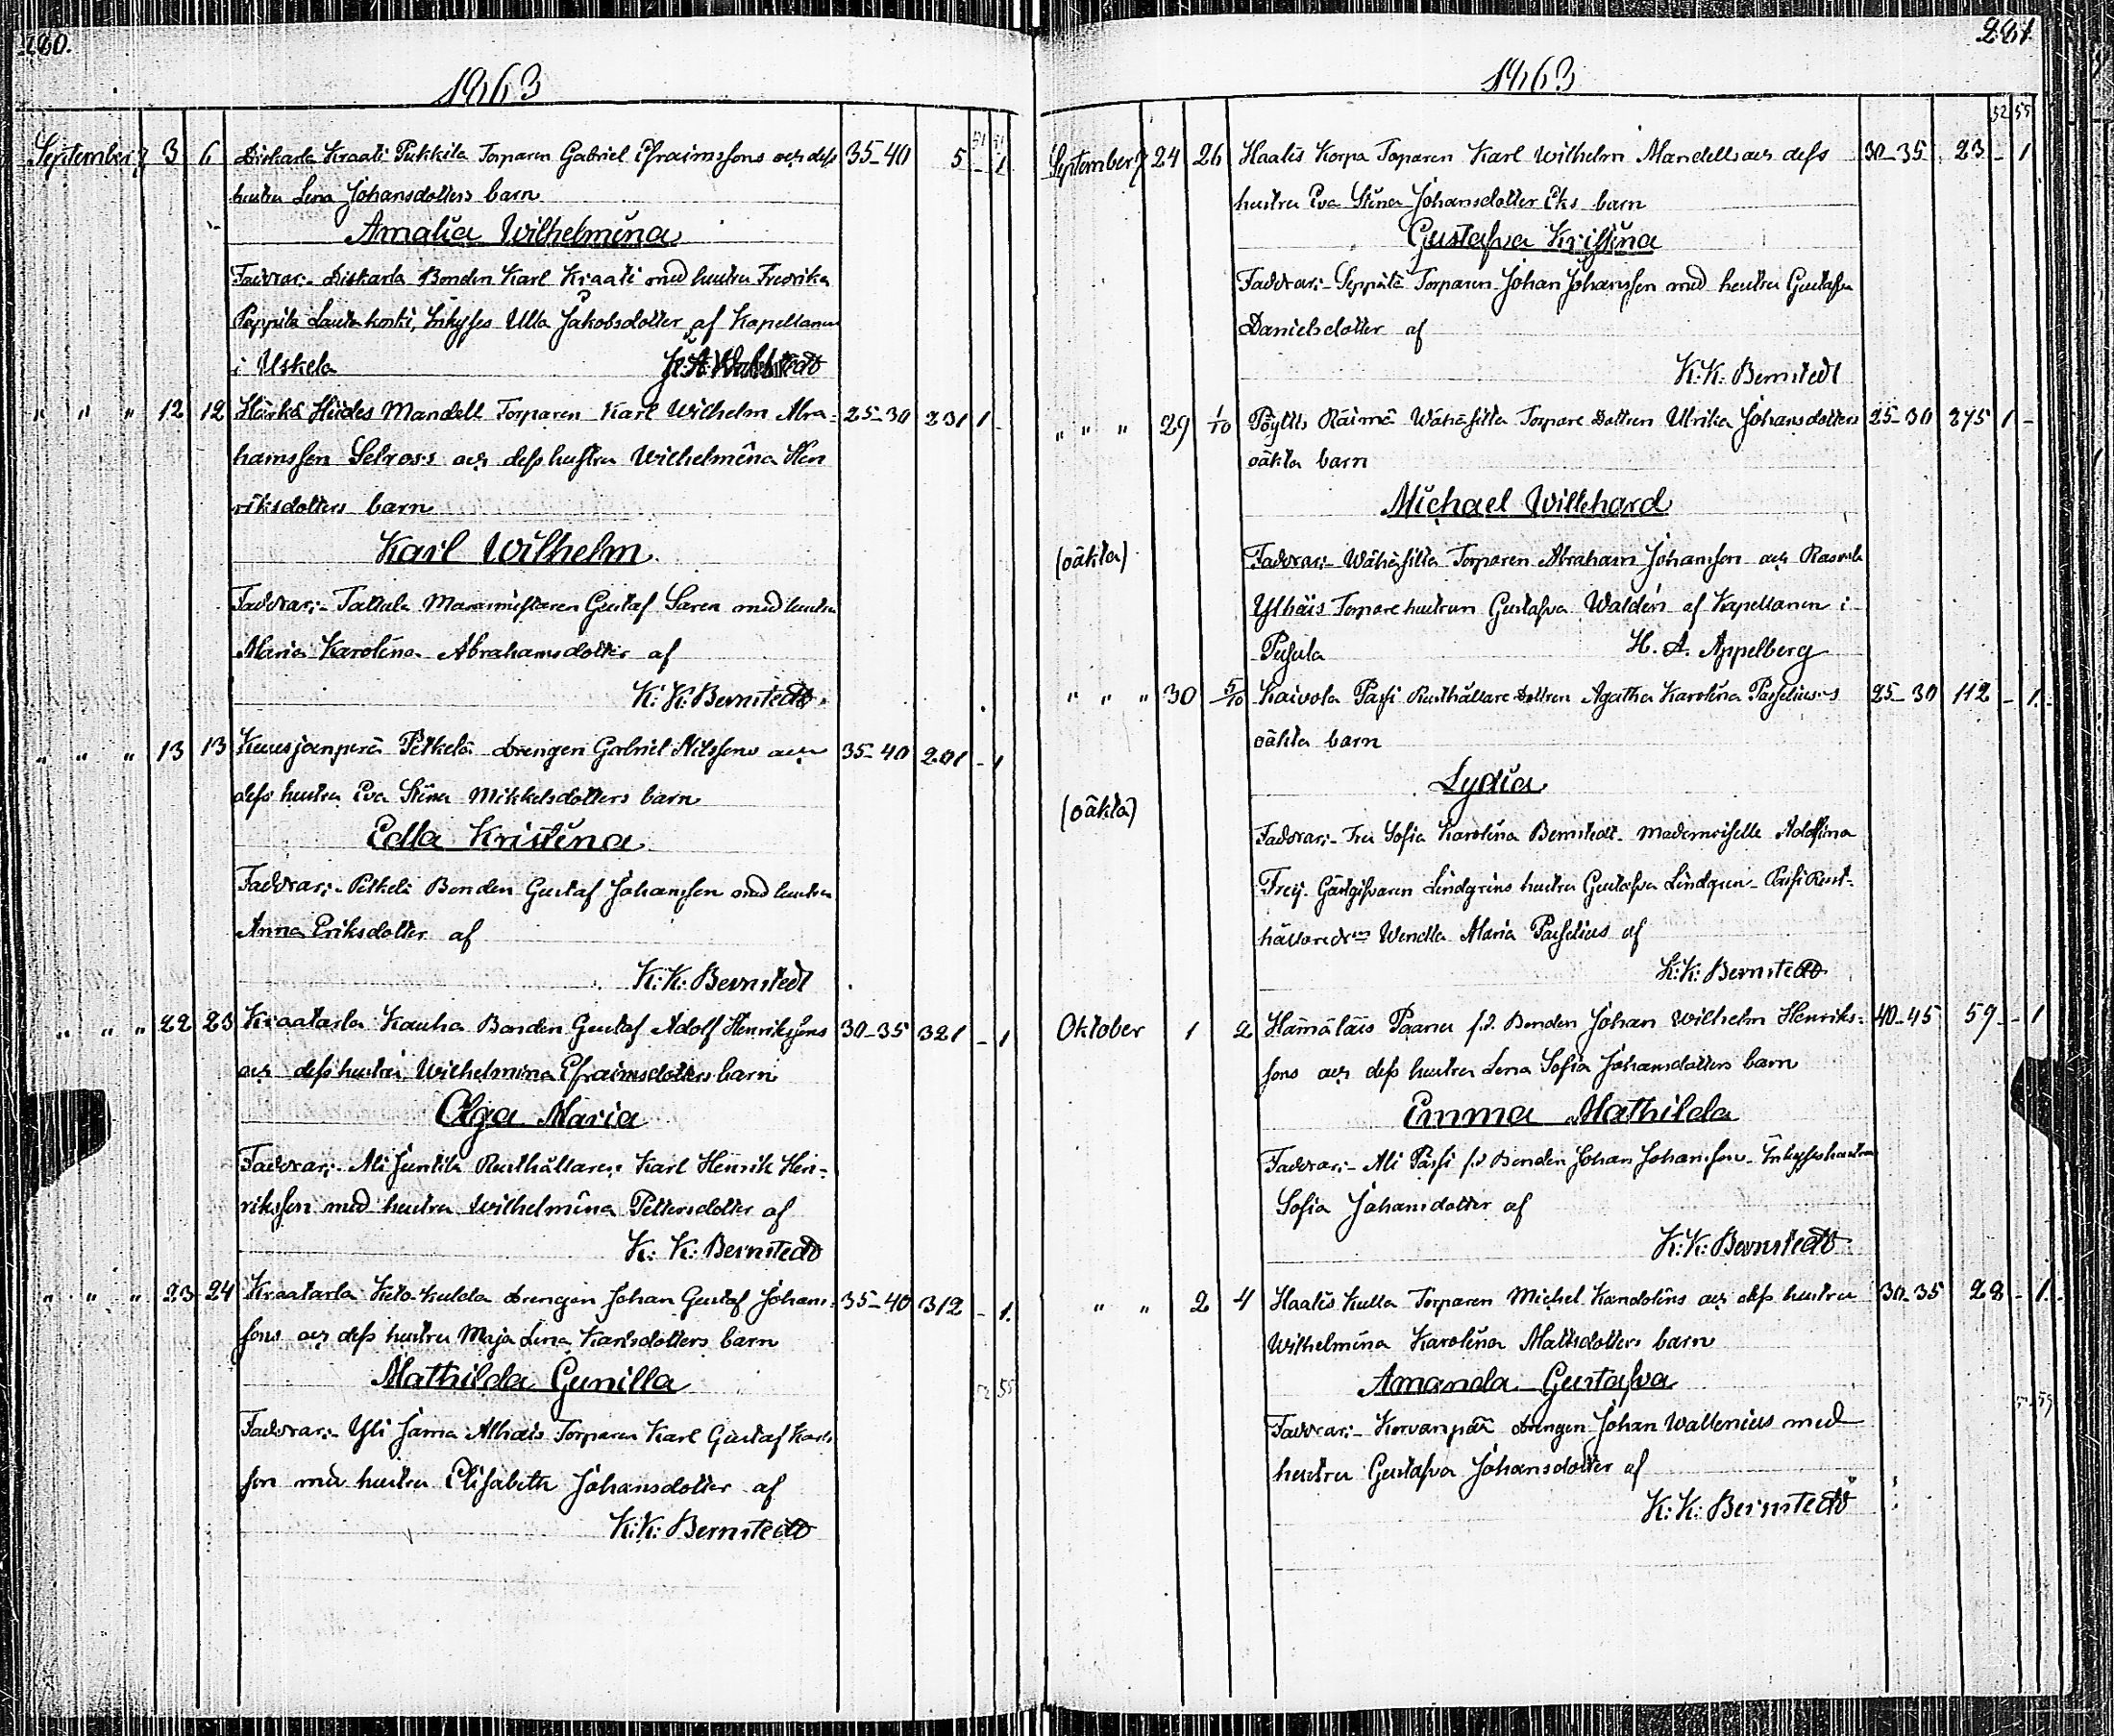 280.
1863
September 3 6 Diskarla Kraati Pukkila Torparen Gabriel Efraimssons och dess 35-40 5 - 1
hustru Lena Johansdotters barn
Amalia Wilhelmina
Faddrar:- Diskarla Bonden Karl Kraati med hustru Fredrika
Pappila Lautakoski, Inhyses Ulla Jakobsdotter af Kapellanen
i Uskela
" " " 12 12 Härkä Hiides Mandell Torparen Karl Wilhelm Abra- 25-30 231 1 -
hamsson Selroos's och dess hustru Wilhelmina Hen
riksdotters barn
Karl Wilhelm
Faddrar:- Tattula Murmästaren Gustaf Saren med hustru
Maria Karolina Abrahamsdotter af
K: K: Bernstedt.
" " " 13 13 Pitkelä Drengen Gabriel Nilssons och 35-40 201 - 1
dess hustru Eva Stina Mikkelsdotters barn
Edla Kristina
Faddrar:- Pitkelä Bonden Gustaf Johansson med hustru
Anna Eriksdotter af
K: K: Bernstedt
" " " 22 23 Kraatarla Kauha Bonden Gustaf Adolf Henrikssons 30-35 321 - 1
och dess hustru Wilhelmina Efraimsdotters barn
Olga Maria
Faddrar:- Ali Juntila Rusthållaren Karl Henrik Hen-
riksson med hustru Wilhelmina Pettersdotter af
K: K: Bernstedt
" " " 23 24 Kraatarla Keto-kulda Drengen Johan Gustaf Johans- 35-40 312 - 1.
sons och dess hustru Maja Lena Karlsdotters barn
Mathilda Gunilla
52 55
Faddrar:- Yli Jama Alhais Torparen Karl Gustaf Karls
son med hustru Elisabeth Johansdotter af
K: K: Bernstedt
281
1863
52 55
September 24 26 Haalis Korpa Torparen Karl Wilhelm Mandells och dess 30-35 23 - 1
hustru Eva Stina Johansdotter Eks barn
Gustafva Kristina
Faddrar:- Seppälä Torparen Johan Johansson med hustru Gustafva
Danielsdotter af
K: K: Bernstedt
" " " 29 1/10 Pöytis Räimä Wähäsilta Torpare Dottren Ulrika Johansdotters 25-30 275 1 -
oäkta barn
Michael Willehard
(oäkta) Faddrar:- Wähäsilta Torparen Abraham Johansson och
Ylhäis Torpare hustrun Gustafva Waldén af Kapellanen i
Pusula H. A. Appelberg
" " " 30 5/10 Kaivola Passi Rusthållare Dottren Agatha Karolina Passelius's 25-30 112 - 1.
oäkta barn
Lydia
(oäkta)
Faddrar:- Fru Sofia Karolina Bernstedt. Mademoiselle Adolfina
Frey. Gästgifvaren Lindgrens hustru Gustafva Lindgren - Passi Rust-
hållaredrn Wendla Maria Passelius af
K: K: Bernstedt
Oktober 1 2 Hämäläis Paanu f.d. Bonden Johan Wilhelm Henriks- 40-45 59 - 1
sons och dess hustru Lena Sofia Johansdotters barn
Emma Mathilda
Faddrar:- Ali Passi f.d. Bonden Johan Johansson - Inhyseshustrun
Sofia Johansdotter af
K: K: Bernstedt
" " 2 4 Haalis Kulla Torparen Michel Kandolins och dess hustru 30-35 28 - 1.
Wilhelmina Karolina Mattsdotters barn
Amanda Gustafva
Faddrar:- Korvanpää Drengen Johan Wallenius med
hustru Gustafva Johansdotter af
K: K: Bernstedt